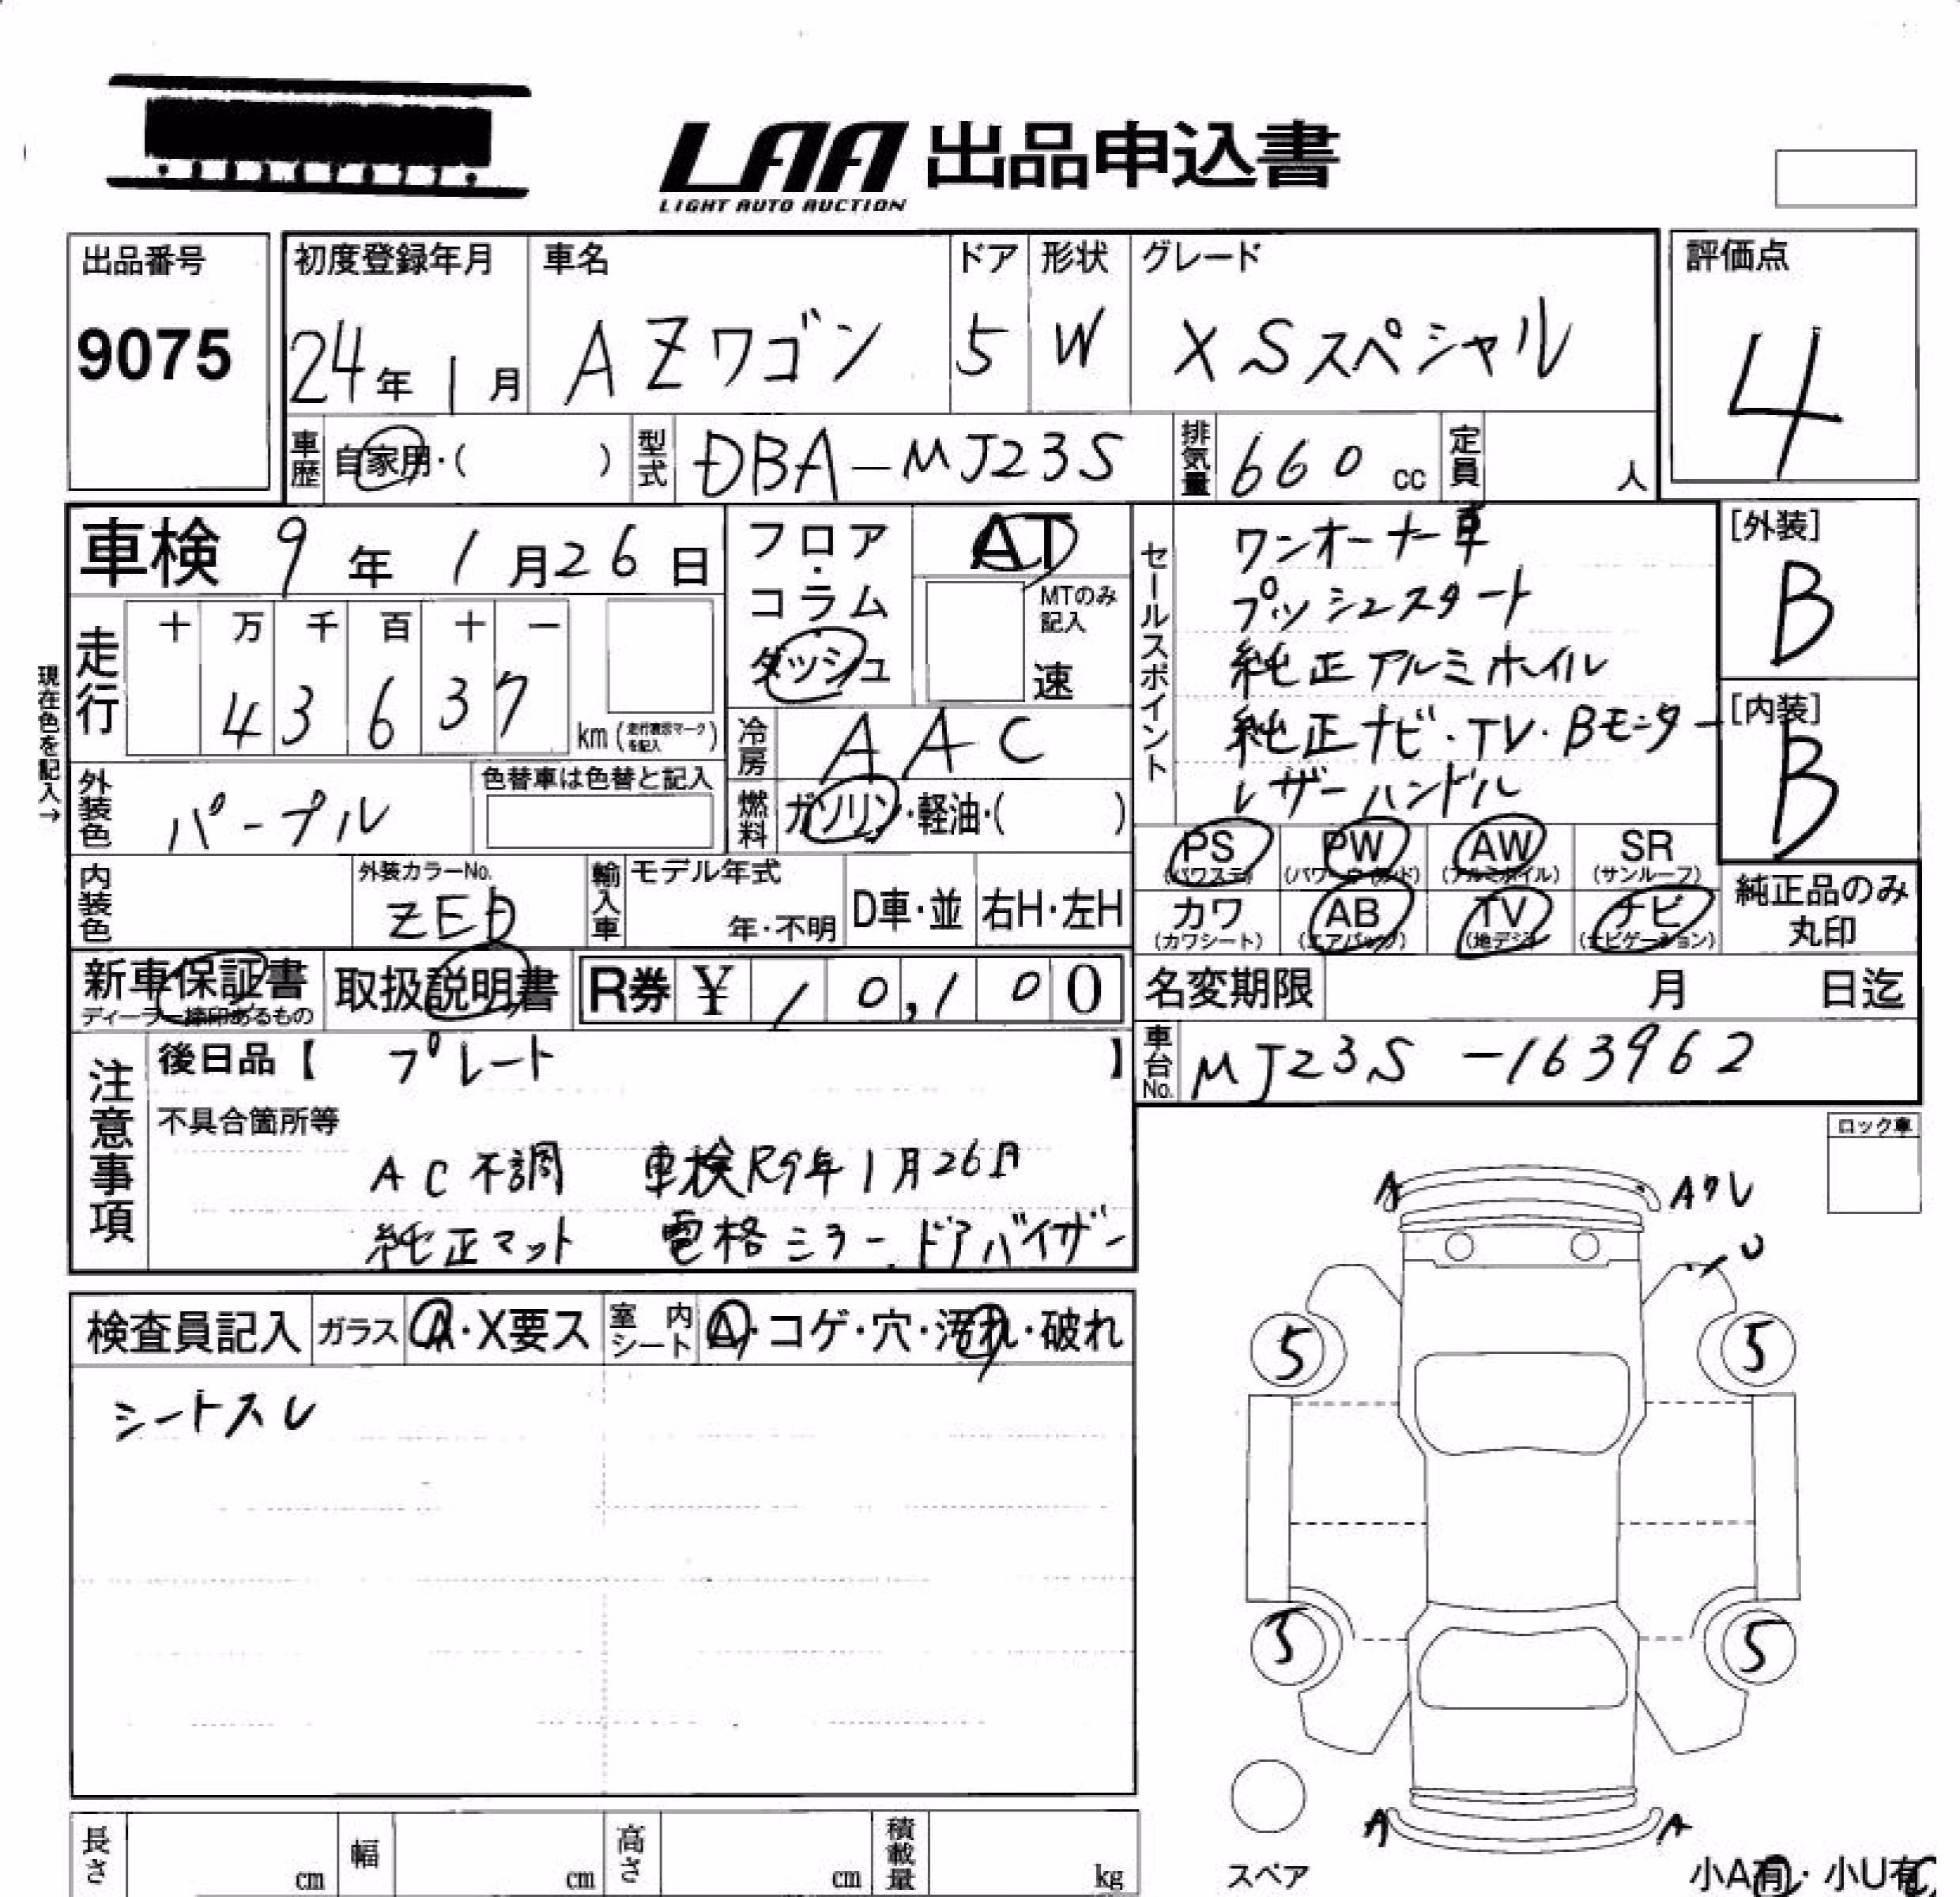 LAA 出品申込書
LIGHT AUTO AUCTION
出品番号
9075
初度登録年月
24年1月
車名
AZワゴン
ドア
5
形状
W
グレード
XSスペシャル
評価点
4
車歴 自家用・( )
型式 DBA-MJ23S
排気量 660 cc
定員 人
車検 9年1月26日
現在色を記入→
走行
十 万 千 百 十 一
4 3 6 3 7
km(
を記入)
フロア・コラム・ダッシュ
AT
MTのみ
記入
速
冷房 AAC
燃料 ガソリン・軽油・( )
外装色 パープル
色替車は色替と記入
内装色
外装カラーNo.
ZED
輸入車
モデル年式
年・不明
D車・並
右H・左H
セールスポイント
ワンオーナー車
プッシュスタート
純正アルミホイル
純正ナビ・TV・Bモニター
レザーハンドル
[外装]
B
[内装]
B
PS PW AW SR
(パワステ) (パワーウィンド) (アルミホイル) (サンルーフ)
カワ AB TV ナビ
(カワシート) (エアバッグ) (地デジ) (ナビゲーション)
純正品のみ
丸印
新車保証書
ディーラー捺印あるもの
取扱説明書
R券 ¥ 10,100
名変期限 月 日迄
車台No. MJ23S-163962
注意事項
後日品【 プレート 】
不具合箇所等
AC不調 車検R9年1月26日
純正マット 電格ミラー.ドアバイザー
ロック車
検査員記入
ガラス A・X要ス
室内シート A・コゲ・穴・汚れ・破れ
シートスレ
A Aクレ
U
5 5
5 5
A A
スペア
小A有・小U有
長さ cm
幅 cm
高さ cm
積載量 kg